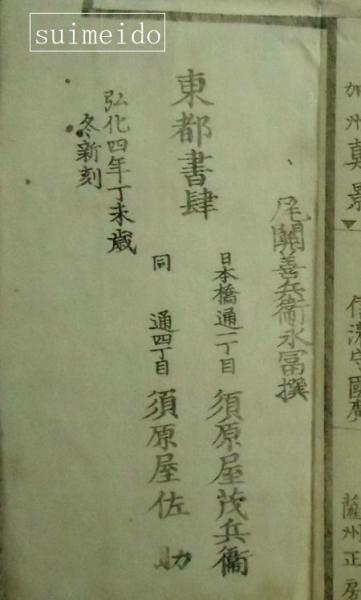 suimeido
加州真景
信濃守國廣
薩州正房
尾關善兵衛永冨撰
東都書肆
日本橋通一丁目 須原屋茂兵衞
同 通四丁目 須原屋佐助
弘化四年丁未歳
冬新刻